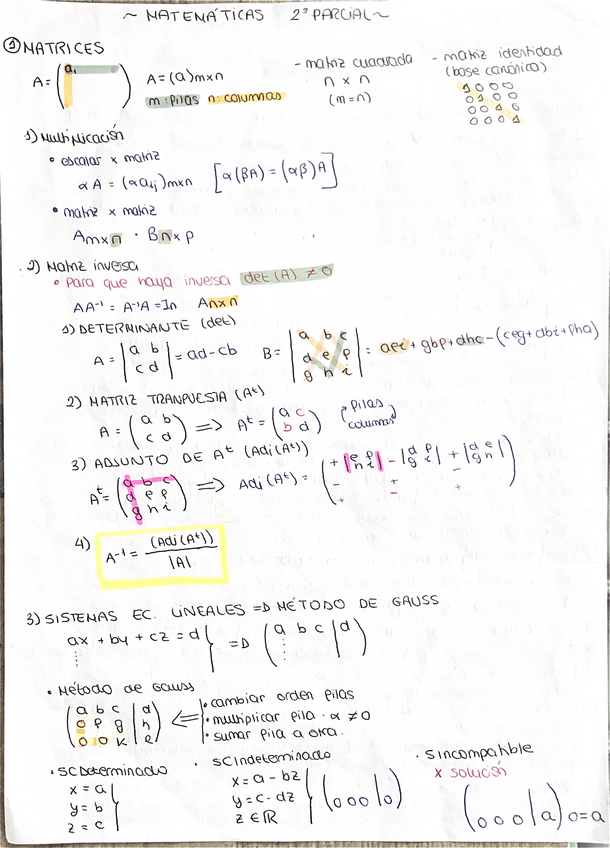 ~ MATEMÁTICAS 2º PARCIAL ~
① MATRICES
A = ( a, )
A = (a)m×n
m: filas n: columnas
- matriz cuadrada
n × n
(m=n)
- matriz identidad
(base canónica)
1 0 0 0
0 1 0 0
0 0 1 0
0 0 0 1
1) Multiplicación
• escalar x matriz
αA = (αaij)m×n [α(βA) = (αβ)A]
• matriz x matriz
Am×n · Bn×p
2) Matriz inversa
• Para que haya inversa det(A) ≠ 0
AA⁻¹ = A⁻¹A = In An×n
1) DETERMINANTE (det)
A = | a b | = ad - cb
| c d |
B = | a b c |
| d e f | = aei + gbf + dhc - (ceg + dbi + fha)
| g h i |
2) MATRIZ TRANPUESTA (Aᵗ)
A = ( a b ) => Aᵗ = ( a c )
( c d ) ( b d )
filas
columnas
3) ADJUNTO DE Aᵗ (Adj(Aᵗ))
Aᵗ = ( a b c )
( d e f ) => Adj(Aᵗ) = ( + | e f | - | d f | + | d e | )
( g h i ) | h i | | g i | | g h |
- + -
+ - +
4) A⁻¹ = (Adj(Aᵗ))
|A|
3) SISTEMAS EC. LINEALES => MÉTODO DE GAUSS
ax + by + cz = d => ( a b c | d )
⋮ ⋮
• Método de Gauss
( a b c | d )
( 0 f g | h )
( 0 0 k | l )
<= • cambiar orden filas
• multiplicar fila · α ≠ 0
• sumar fila a otra.
• SC Determinado
x = a
y = b
z = c
• SC Indeterminado
x = a - bz
y = c - dz
z ∈ ℝ
( 0 0 0 | 0 )
• S incompatible
x solución
( 0 0 0 | a ) 0 = a